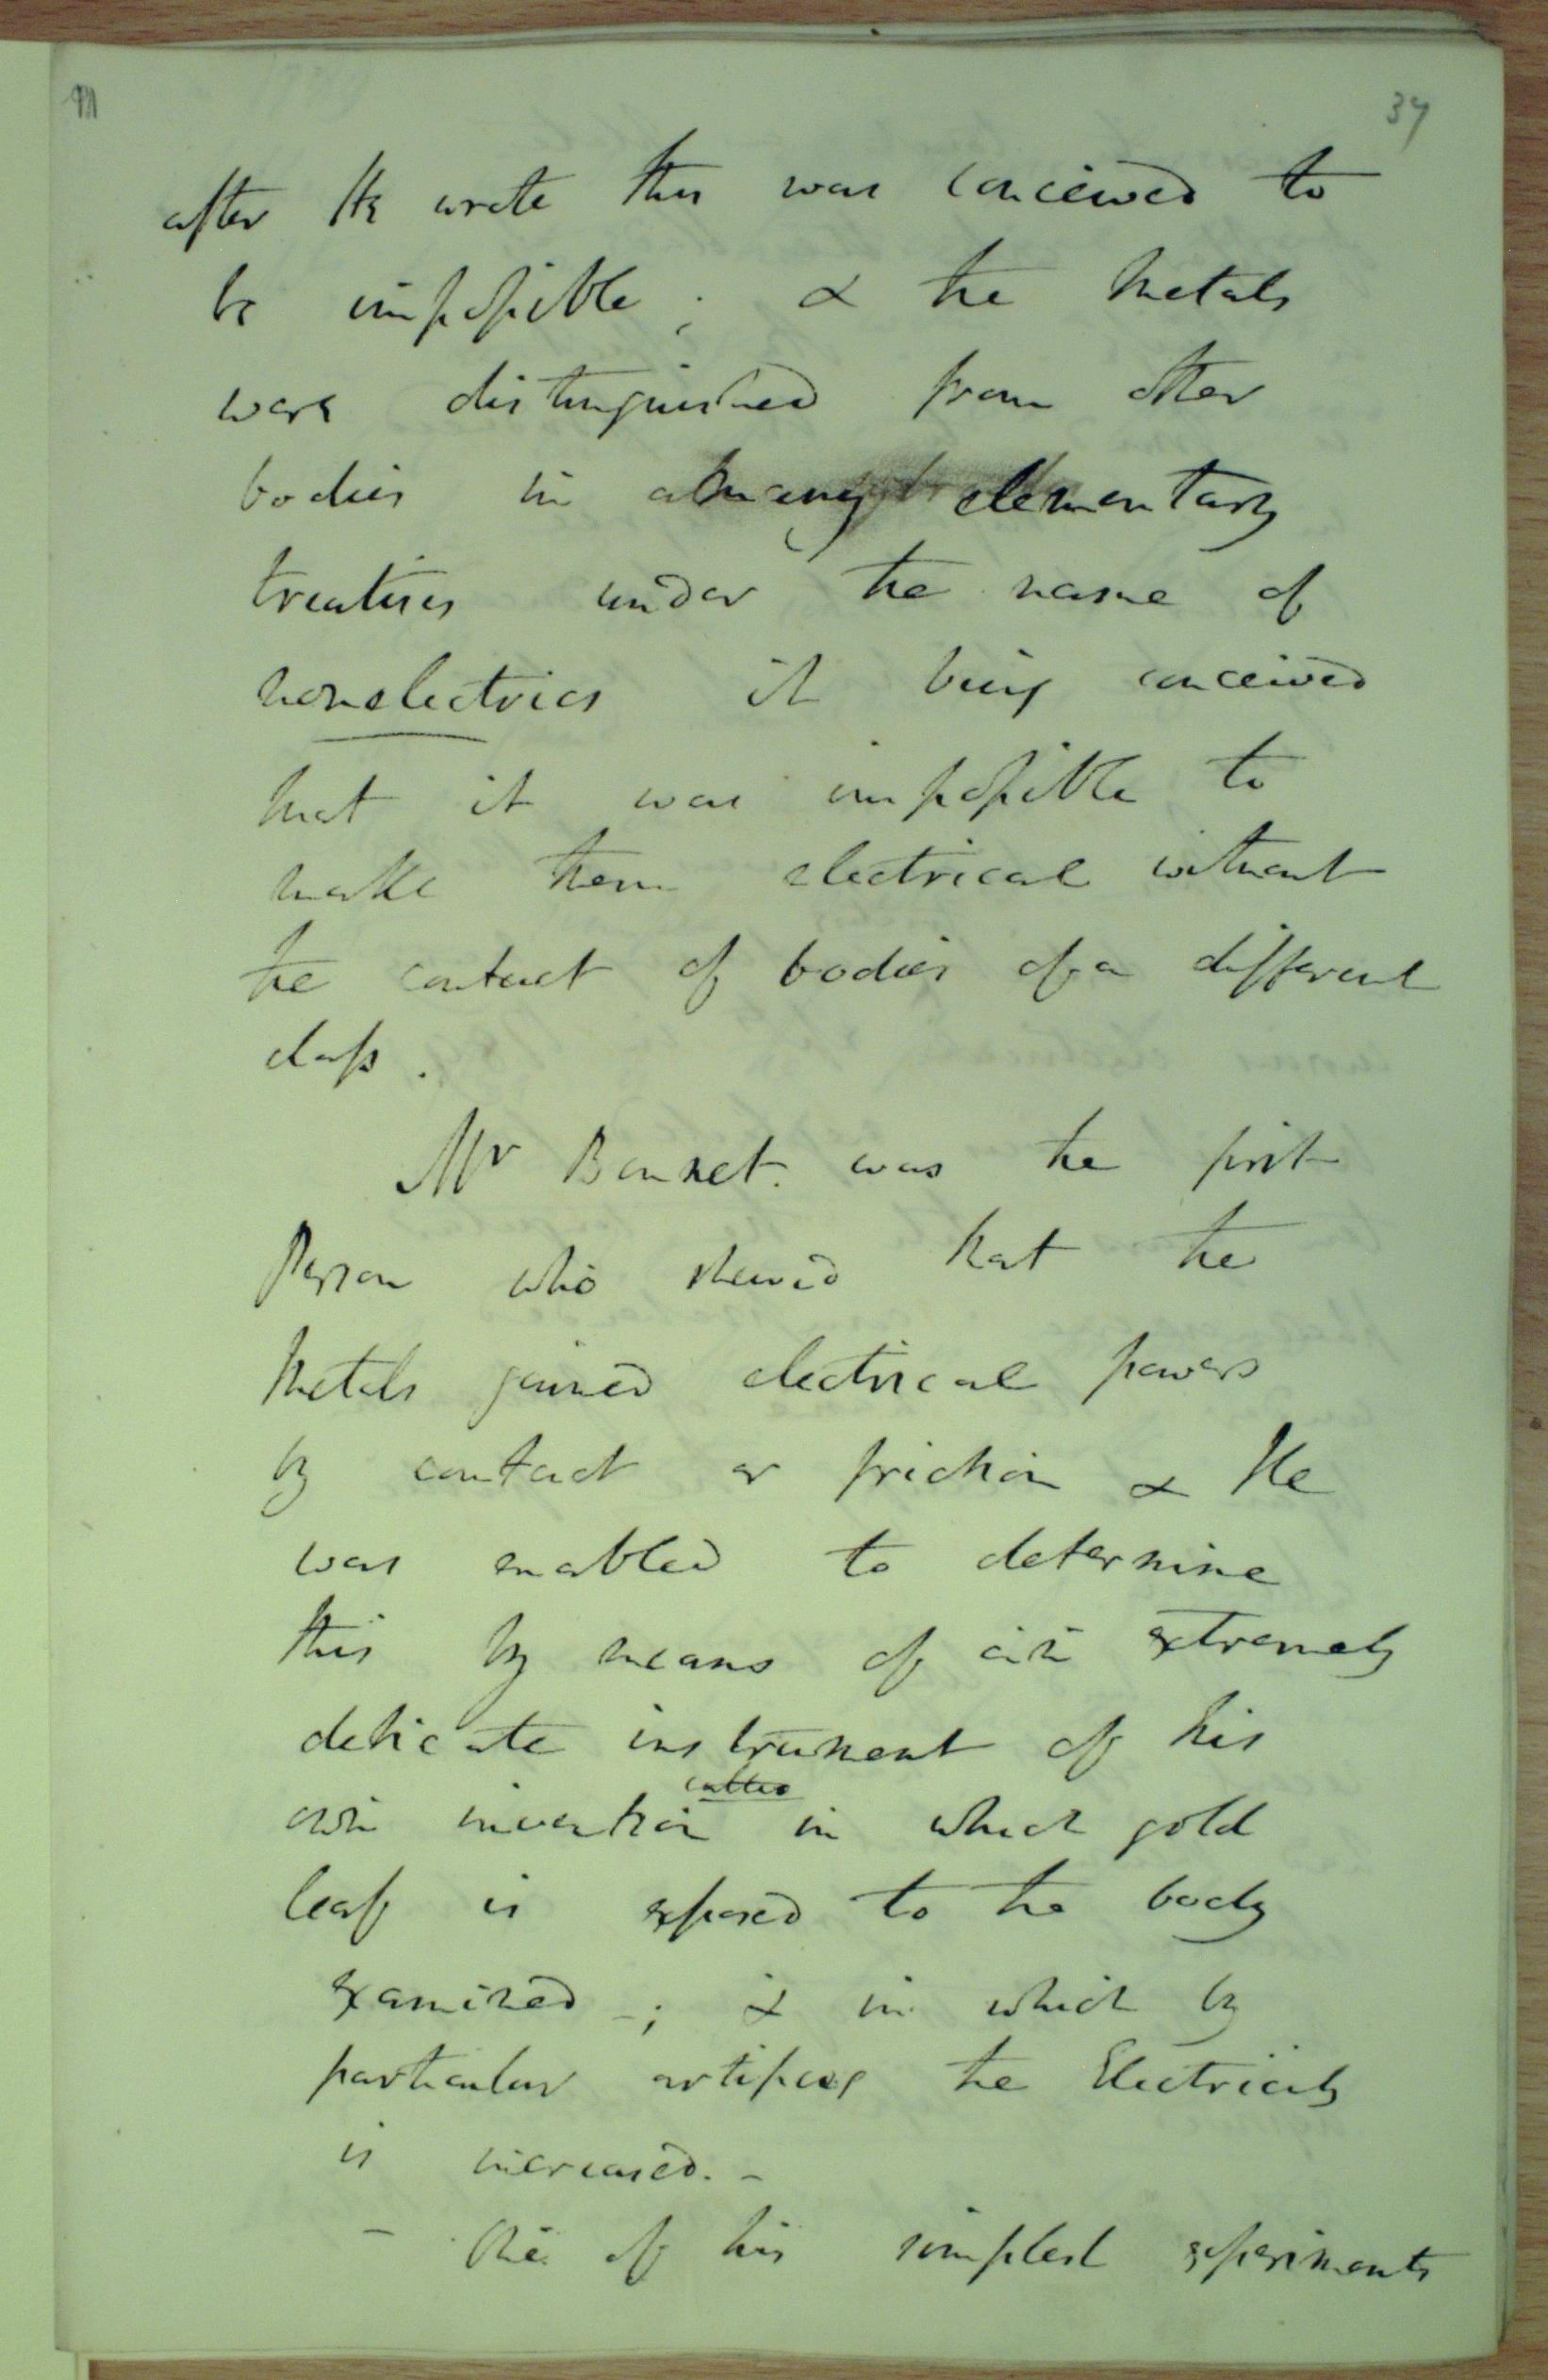 37
after He wrote this was conceived to
be impossible; & the Metals
were distinguished from other
bodies in many elementary
treatises under the name of
nonelectrics it being conceived
that it was impossible to
make them electrical without
the contact of bodies of a different
class.
Mr Bennet. was the first
Person who shewed that the
Metals gained electrical powers
by contact or friction & He
was enabled to determine
this by means of an extremely
delicate instrument of his
called
own invention in which gold
leaf is exposed to the body
examined -; & in which by
particular artifices the Electricity
is increased. -
- One of his simplest experiments